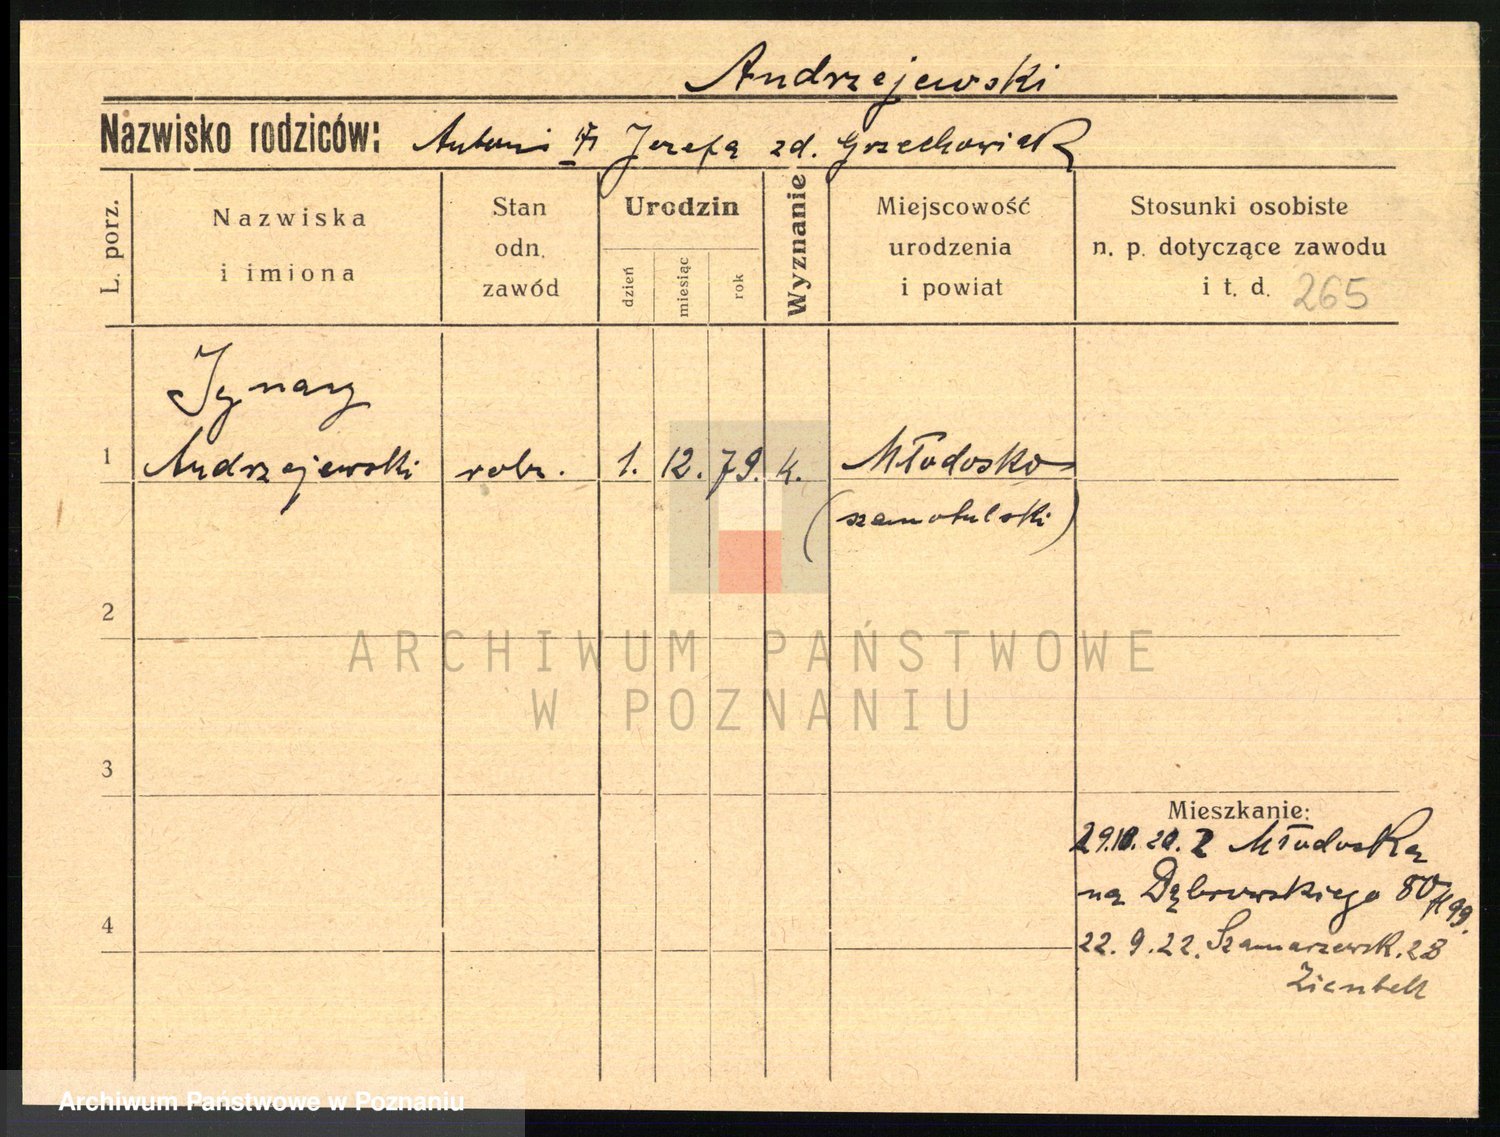 Andrzejewski
Nazwisko rodziców: Antoni i Józefa zd. Grzechowiak
L. porz.
Nazwiska
i imiona
Stan
odn.
zawód
Urodzin
dzień
miesiąc
rok
Wyznanie
Miejscowość
urodzenia
i powiat
Stosunki osobiste
n. p. dotyczące zawodu
i t. d. 265
Ignacy
1 Andrzejewski robr. 1. 12. 79. k. Młodosko
(szamotulski)
2
ARCHIWUM PAŃSTWOWE
W POZNANIU
3
Mieszkanie:
29.10.20. z Młodoska
na Dąbrowskiego 80
4
22. 9. 22. Szamarzewsk. 28
Archiwum Państwowe w Poznaniu